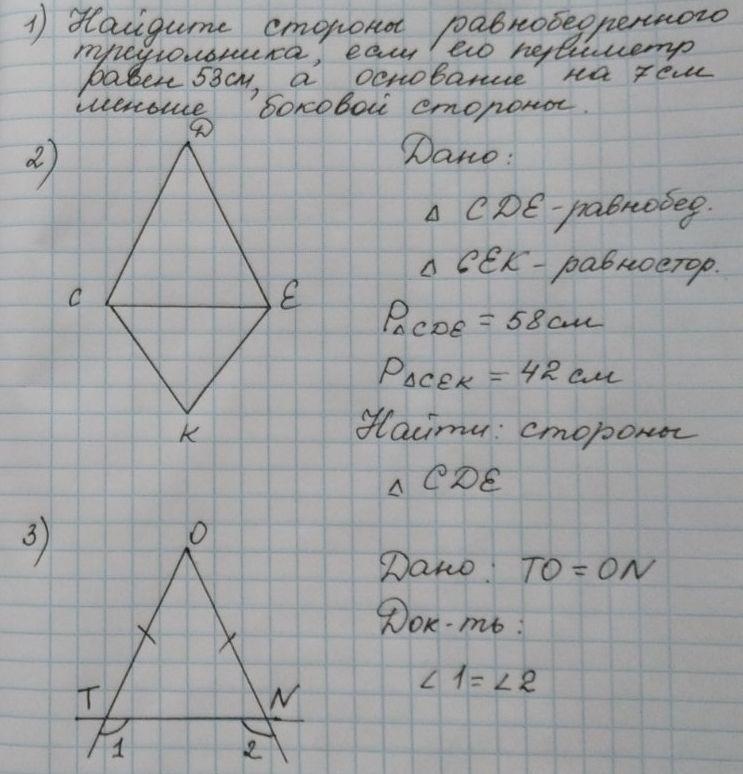 1) Найдите стороны равнобедренного
треугольника, если его периметр
равен 53см, а основание на 7см
меньше боковой стороны.
2)
D
C
E
K
Дано:
△ CDE - равнобед.
△ CEK - равностор.
P△CDE = 58см
P△CEK = 42см
Найти: стороны
△ CDE
3)
O
T
N
1
2
Дано: TO = ON
Док-ть:
∠1 = ∠2